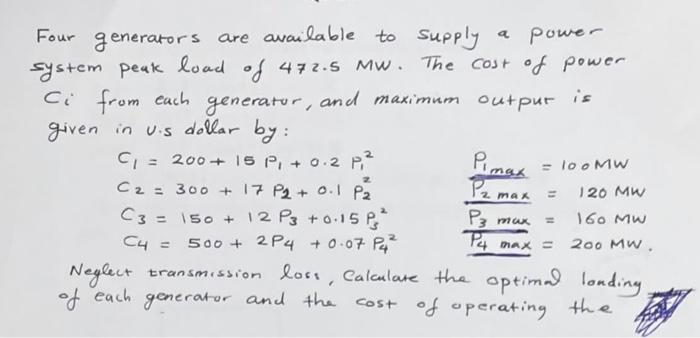 Four generators are available to supply a power
system peak load of 472.5 MW. The cost of power
Ci from each generator, and maximum output is
given in U.S dollar by:
C₁ = 200 + 15 P₁ + 0.2 P₁² P₁ max = 100 MW
C₂ = 300 + 17 P₂ + 0.1 P₂² P₂ max = 120 MW
C₃ = 150 + 12 P₃ + 0.15 P₃² P₃ max = 160 MW
C₄ = 500 + 2P₄ + 0.07 P₄² P₄ max = 200 MW.
Neglect transmission loss, Calculate the optimal loading
of each generator and the cost of operating the